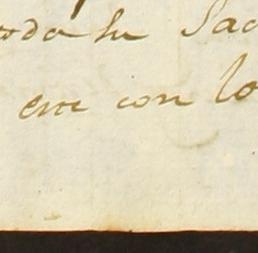 oda su Sac
ere con lo